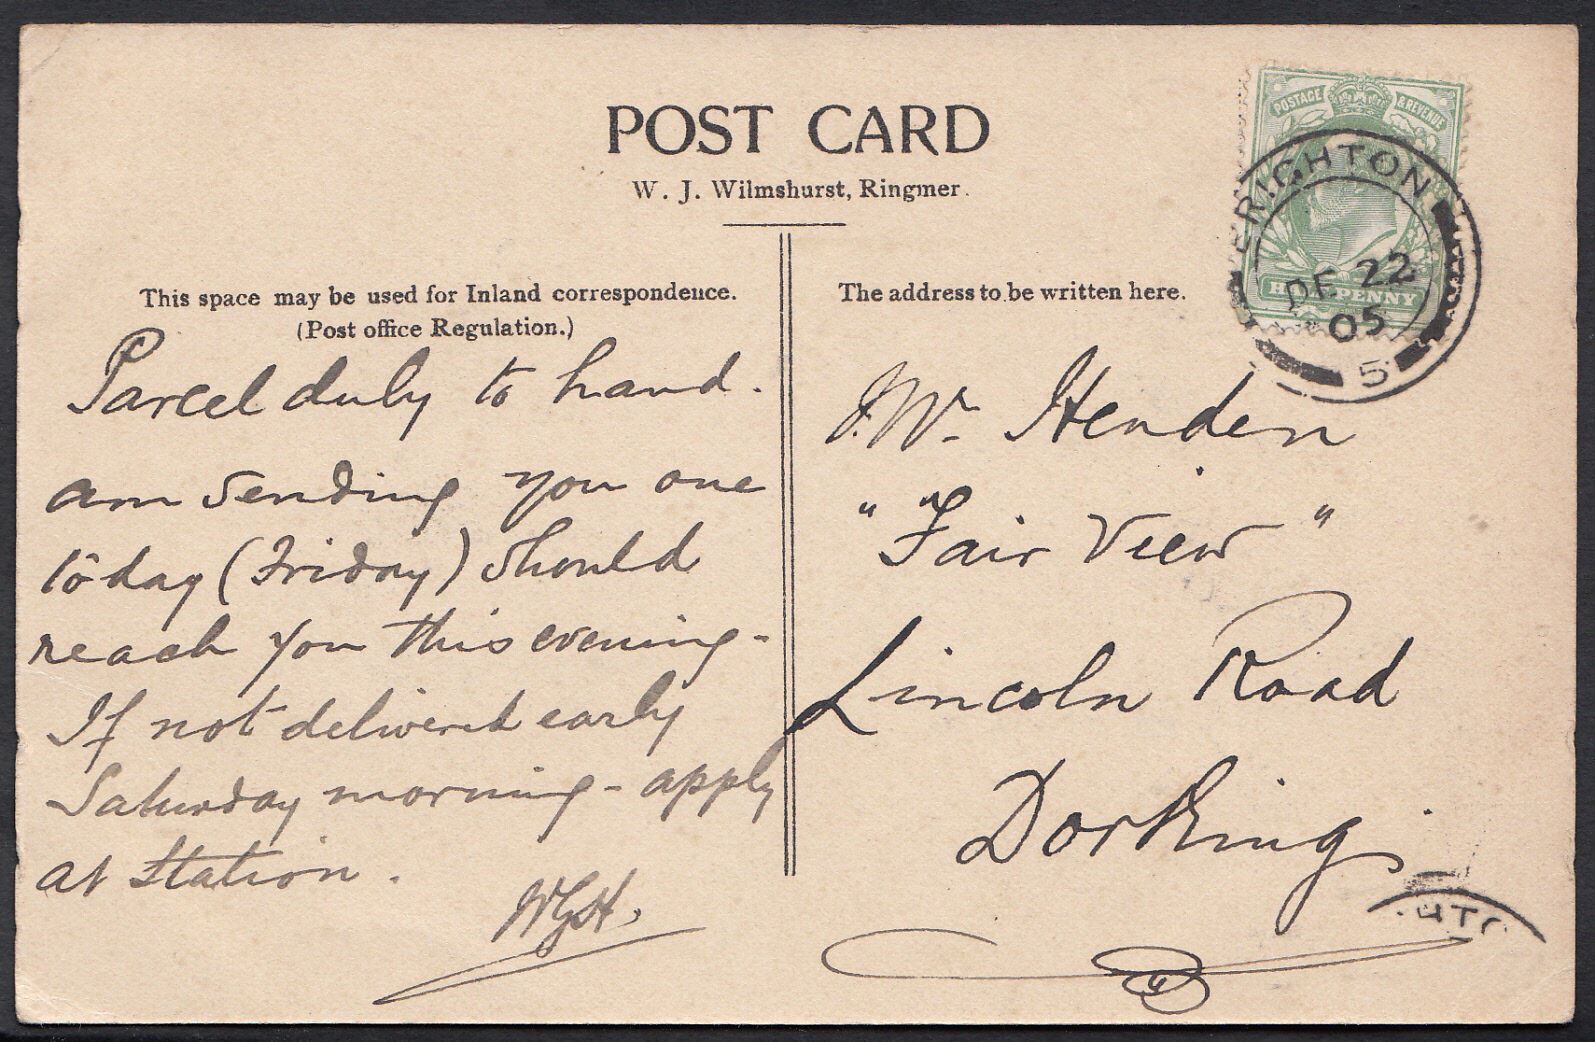 POST CARD
W. J. Wilmshurst, Ringmer.
This space may be used for Inland correspondence.
(Post office Regulation.)
Parcel duly to hand.
am sending you one
to day (Friday) should
reach you this evening -
If not delivered early
Saturday morning - apply
at Station.
WGH.
The address to be written here.
J.W. Henden
"Fair View"
Lincoln Road
Dorking
POSTAGE & REVENUE
HALFPENNY
BRIGHTON
DE 22
05
5
HTO